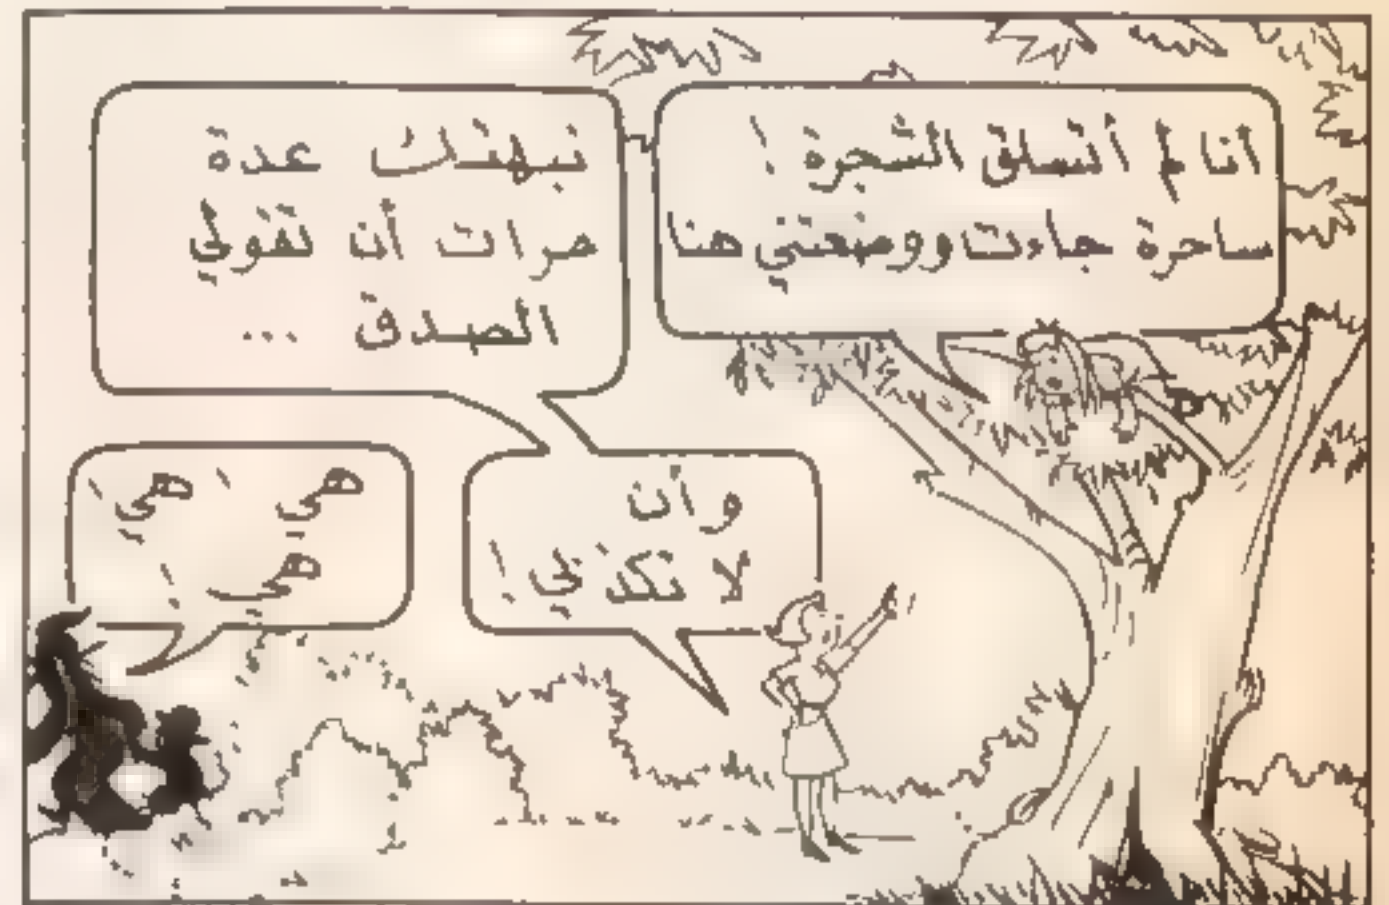 أنا لم أتسلق الشجرة !
ساحرة جاءت ووضعتني هنا
نبهتك عدة
مرات أن تقولي
الصدق ...
وأن
لا تكذبي !
هي ! هي !
هي !